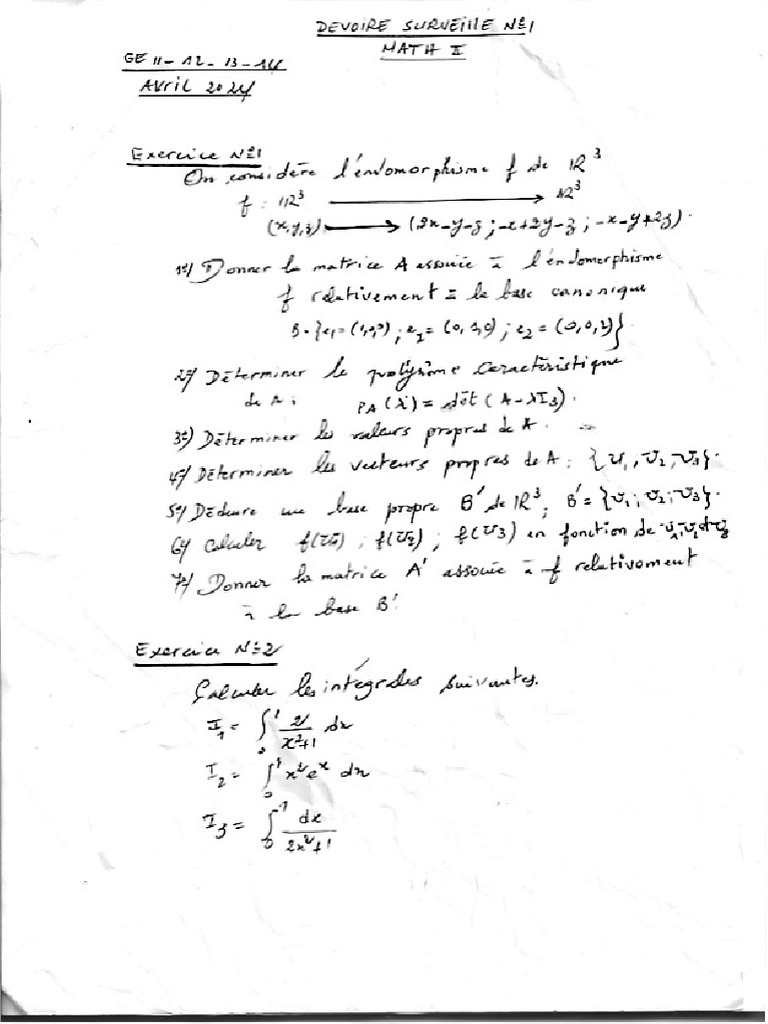 DEVOIRE SURVEILLE N°1
MATH II
GE 11-12-13-14
Avril 2024
Exercice N°1
On considère l'endomorphisme f de IR³
f : IR³ ⟶ IR³
(x,y,z) ⟶ (2x-y-z ; -x+2y-z ; -x-y+2z).
1°/ Donner la matrice A associée à l'endomorphisme
f relativement à la base canonique
B = {e₁ = (1,0,0) ; e₂ = (0,1,0) ; e₂ = (0,0,1)}
2°/ Déterminer le polynôme caractéristique
de A : P_A(λ) = dét (A-λI₃).
3°) Déterminer les valeurs propres de A.
4°/ Déterminer les vecteurs propres de A : {v₁, v₂, v₃}.
5°/ Déduire une base propre B' de IR³, B' = {v₁ ; v₂ ; v₃}.
6°/ Calculer f(v₁) ; f(v₂) ; f(v₃) en fonction de v₁, v₂ et v₃
7°/ Donner la matrice A' associée à f relativement
à la base B'.
Exercice N°2
Calculer les intégrales suivantes.
I₁ = ∫₀¹ 2/(x²+1) dx
I₂ = ∫₀¹ x²eˣ dx
I₃ = ∫₀¹ dx/(2x²+1)